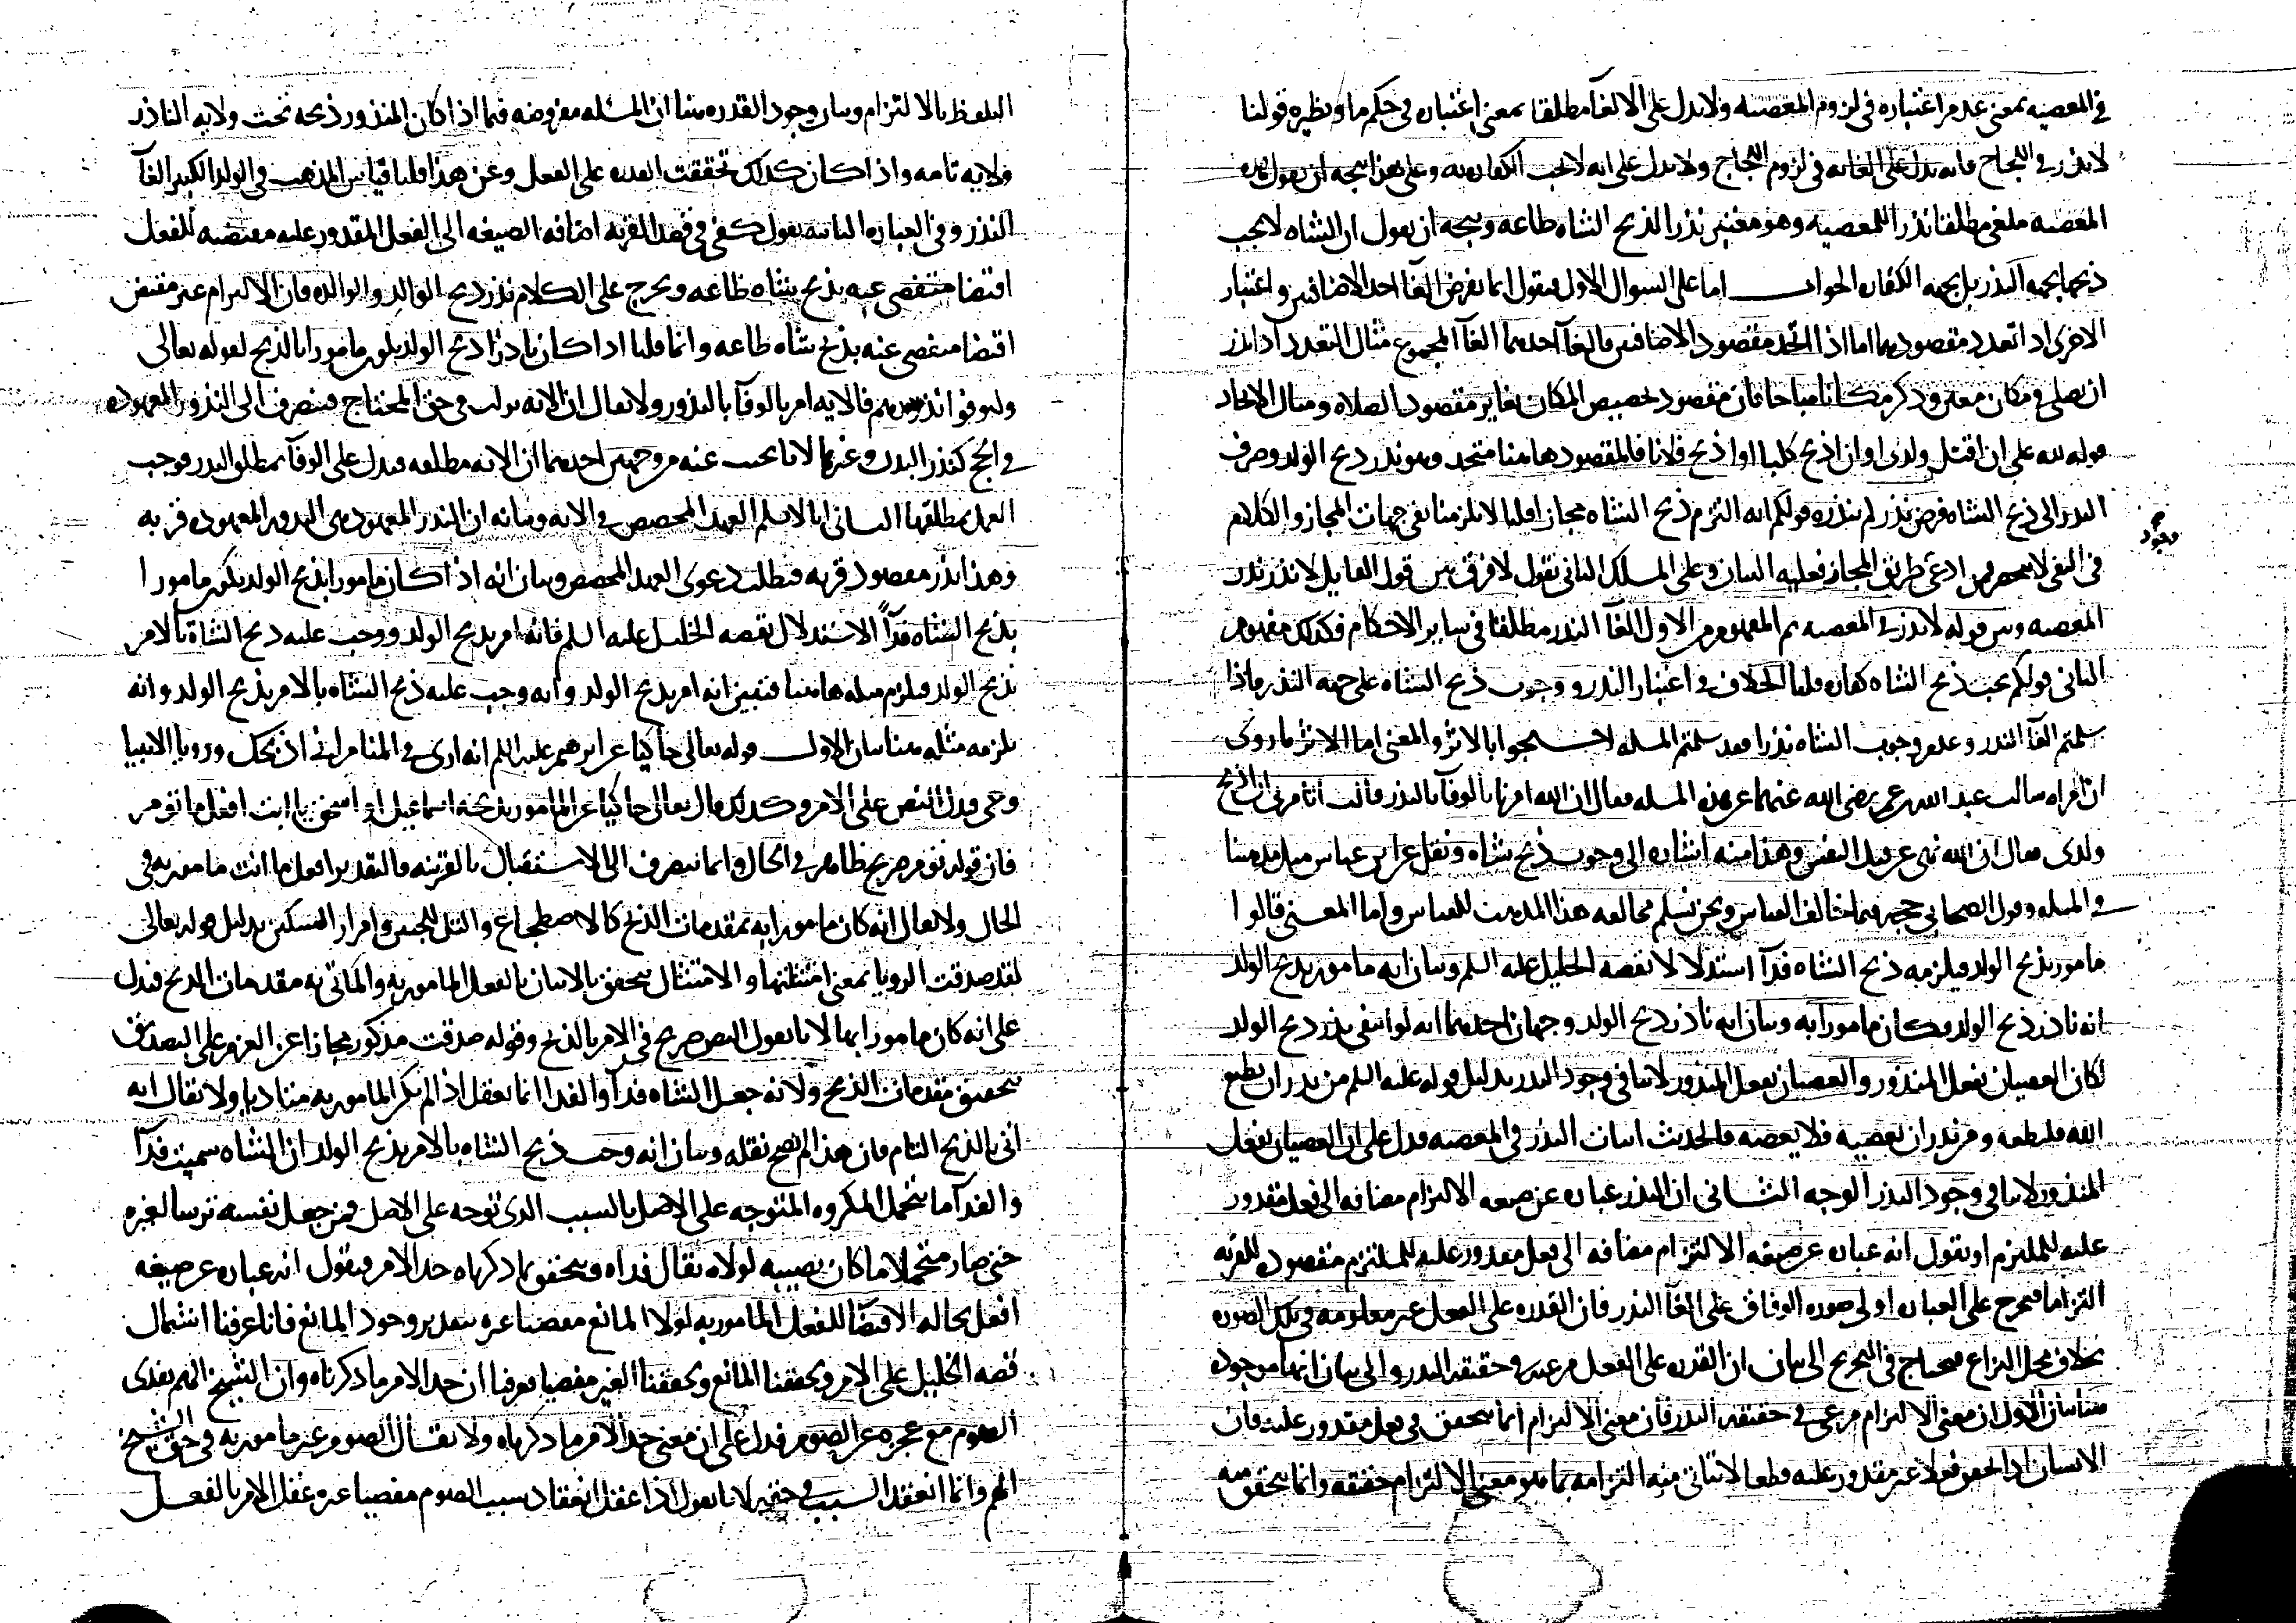 في المعصيه بمعنى عدم اعتباره في لزوم المعصيه ولا يدل على الالغآ مطلقا بمعنى اعتباره في حكم ما ونظيره قولنا
لا نذر في اللجاج فانه يدل على الغائه في لزوم اللجاج ولا يدل على انه لا تجب الكفاره به وعلى هذا يتجه ان يقول نذر
المعصيه ملغى مطلقا نذرا للمعصيه وهو معتبر نذرا لذبح الشاه طاعه ويتجه ان يقول ان الشاه لا يجب
ذبحها بجهه النذر بل بجهه الكفاره الجواب اما على السوال الاول فنقول انما يفرض الغآ احد الاضافتين واعتبار
الاخرى اذا تعدد مقصودهما اما اذا اتحد مقصود الاضافتين فالغآ احدهما الغآ المجموع مثال التعدد اذا نذر
ان يصلي في مكان معين وذكر مكانا مباحا فان مقصود تخصيص المكان يغاير مقصود الصلاه ومثال الاتحاد
قوله لله علي ان اقتل ولدي او ان اذبح كلبا او اذبح فلانا فالمقصود هاهنا متحد وهو نذر ذبح الولد وصرف
النذر الى ذبح الشاه فرض نذر لم ينذره قولكم انه التزم ذبح الشاه مجازا قلنا لا يلزمنا نفي جهات المجاز والكلام
وجوه
في النفي لا ينحصر فمن ادعى طريق المجاز فعليه البيان وعلى المسلك الثاني نقول لا فرق بين قول القايل لا نذر نذر
المعصيه وبين قوله لا نذر في المعصيه ثم المفهوم من الاول الغآ النذر مطلقا في ساير الاحكام فكذلك مفهوم
الثاني قولكم يجب ذبح الشاه كفاره قلنا الخلاف في اعتبار النذر ووجوب ذبح الشاه على جهه النذر فاذا
سلمتم الغآ النذر وعدم وجوب الشاه نذرا فقد سلمتم المسله احتجوا بالاثر والمعنى اما الاثر ما روي
ان امراه سالت عبد الله بن عمر رضي الله عنهما عن هذه المسله فقال ان الله امرنا بالوفآ بالنذر فقالت اتامرني ان اذبح
ولدي فقال ان الله نهى عن قتل النفس وهذا منه اشاره الى وجوب ذبح شاه ونقل عن ابن عباس مثل مذهبنا
في المسله وقول الصحابي حجه فيما خالف القياس ونحن نسلم مخالفه هذا المذهب للقياس واما المعنى قالوا
مامور بذبح الولد فيلزمه ذبح الشاه فدآ استدلالا بقصه الخليل عليه السلم وبيان انه مامور بذبح الولد
انه ناذر ذبح الولد فكان مامورا به وبيان انه ناذر ذبح الولد وجهان احدهما انه لو انتفى نذر ذبح الولد
لكان العصيان بفعل المنذور والعصيان بفعل المنذور لا ينافي وجود النذر بدليل قوله عليه السلم من نذر ان يطيع
الله فليطعه ومن نذر ان يعصيه فلا يعصه فالحديث اثبات النذر في المعصيه فدل على ان العصيان بفعل
المنذور لا ينافي وجود النذر الوجه الثاني ان النذر عباره عن صيغه الالتزام مضافه الى فعل مقدور
عليه للملتزم او نقول انه عباره عن صيغه الالتزام مضافه الى فعل مقدور عليه للملتزم مقصود للقربه
التزاما فيخرج على العباره اولى صوره الوفاق على الغآ النذر فان القدره على الفعل غير معلومه في تلك الصوره
بخلاف محل النزاع فيحتاج في التخريج الى بيان ان القدره على الفعل مرعيه في حقيقه النذر والى بيان انها موجوده
هنا بيان الاول ان معنى الالتزام مرعي في حقيقه النذر فان معنى الالتزام انما يتحقق في فعل مقدور عليه فان
الانسان اذا الحق فعلا غير مقدور عليه قطعا لا يتاتى منه التزامه بما هو معنى الالتزام حقيقه وانما يتحقق منه
التلفظ بالالتزام وبيان وجود القدره هنا ان المسئله مفروضه فيما اذا كان المنذور ذبحه تحت ولايه الناذر
ولايه تامه واذا كان كذلك تحققت القدره على الفعل وعن هذا قلنا قياس المذهب في الولد الكبير الغآ
النذر وفي العباره الثانيه نقول كفى في قصد القربه اضافه الصيغه الى الفعل المقدور عليه مقتضيه للفعل
اقتضا متفصى عنه بذبح شاه طاعه ويخرج على الكلام نذر ذبح الوالد والوالده فان الالتزام غير مقتض
اقتضا متفصى عنه بذبح شاه طاعه وانما قلنا اذا كان ناذرا ذبح الولد يكون مامورا بالذبح لقوله تعالى
وليوفوا نذورهم فالايه امر بالوفآ بالنذور ولا يقال ان الايه نزلت في حق المحتاج فينصرف الى النذور المعهوده
في الحج كنذر البدن وغيرها لانا نجيب عنه من وجهين احدهما ان الايه مطلقه فيدل على الوفآ بمطلق النذر فوجب
العمل بمطلقها الثاني انا لا نسلم العهد المخصص في الايه وبيانه ان النذر المعهود هي النذور المعهوده قربه
وهذا نذر مقصود قربه فبطلت دعوى العهد المخصص وبيان انه اذا كان مامورا بذبح الولد يكون مامورا
بذبح الشاه فدآً الاستدلال بقصه الخليل عليه السلم فانه امر بذبح الولد ووجب عليه ذبح الشاه بالامر
بذبح الولد فيلزم مثله هاهنا فنبين انه امر بذبح الولد وانه وجب عليه ذبح الشاه بالامر بذبح الولد وانه
يلزمه مثله هنا بيان الاول قوله تعالى حاكيا عن ابرهيم عليه السلم اني ارى في المنام اني اذبحك وروبا الانبيا
وحي فدل النص على الامر وكذلك قال تعالى حاكيا عن المامور بذبحه اسماعيل او اسحق يا ابت افعل ما تومر
فان قوله تومر صريح ظاهر في الحال وانما ينصرف الى الاستقبال بالقرينه فالتقدير افعل ما انت مامور به في
الحال ولا يقال انه كان مامورا به بمقدمات الذبح كالاضطجاع والتل للجبين وامرار السكين بدليل قوله تعالى
لقد صدقت الرويا بمعنى امتثلتها والامتثال يتحقق بالاتيان بالفعل المامور به والماتي به مقدمات الذبح فيدل
على انه كان مامورا بها لانا نقول النص صريح في الامر بالذبح وقوله صدقت مذكور مجازا عن العزم على التصديق
بتحقيق مقدمات الذبح ولانه جعل الشاه فدآ والفدا انما يعقل اذا لم يكن المامور به متاديا ولا يقال انه
اتى بالذبح التام فان هذا لم يصح نقله وبيان انه وجب ذبح الشاه بالامر بذبح الولد ان الشاه سميت فدآ
والفدآ ما يتحمل المكروه المتوجه على الاصل بالسبب الذي توجه على الاصل فمن جعل نفسه ترسا لغيره
حتى صار متحملا ما كان يصيبه لولاه يقال فداه فيتحقق بما ذكرناه حد الامر فنقول انه عباره عن صيغه
افعل بحاله الاقتضآ للفعل المامور به لولا المانع مفضيا غيره بتقدير وجود المانع فانا عرفنا اشتمال
قصه الخليل على الامر وتحققنا المانع وتحققنا الغير مفضيا فعرفنا ان حد الامر ما ذكرناه وان الشيخ الهم يفدى
الصوم مع عجزه عن الصوم فدل على ان معنى حد الامر ما ذكرناه ولا يقال الصوم غير مامور به في حق الشيخ
الهم وانما انعقد السبب في حقه لانا نقول اذا عقل انعقاد سبب الصوم مفضيا غيره عقل الامر بالفعل